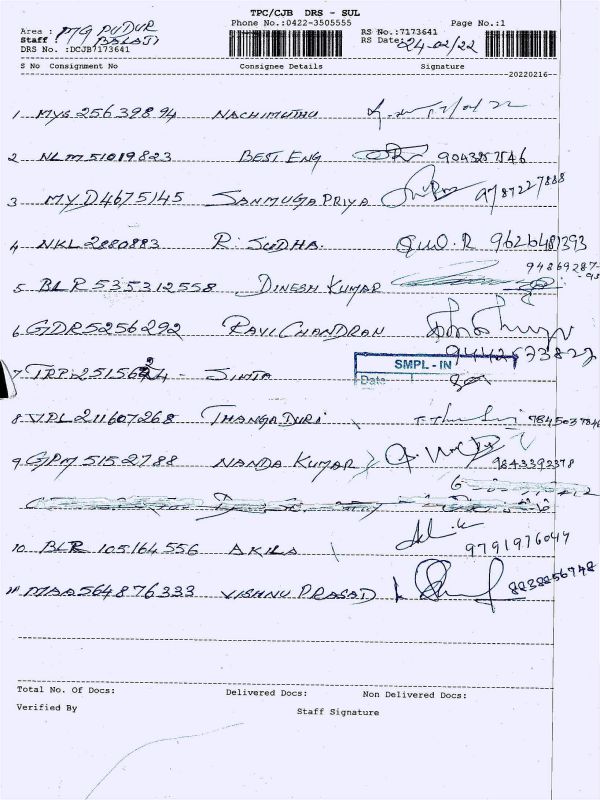 TPC/CJB DRS - SUL
Area : MG PUDUR Phone No.:0422-3505555 Page No.:1
Staff : BALAJI RS No.:7173641
DRS No. :DCJB7173641 RS Date: 24-02/22
S No Consignment No Consignee Details Signature
20220216
1 MYS 25639894 NACHIMUTHU
2 NLM 51019823 BEST ENG 9043257546
3 MYD4675145 SANMUGAPRIYA 9787227888
4 NKL 2880883 R. SUDHA. R 9626481393
94869287-
5 BLR 535312558 DINESH KUMAR
6 GDR5256292 RAVICHANDRAN
SMPL - IN
7 -
Date
8 VPL 211607268 THANGADURI
9 GPM 5152788 NANDA KUMAR 9843392378
10. BLR 105164556 AKILA 9791976047
11 MAA564876333 VISHNU PRASAD
Total No. Of Docs: Delivered Docs: Non Delivered Docs:
Verified By Staff Signature